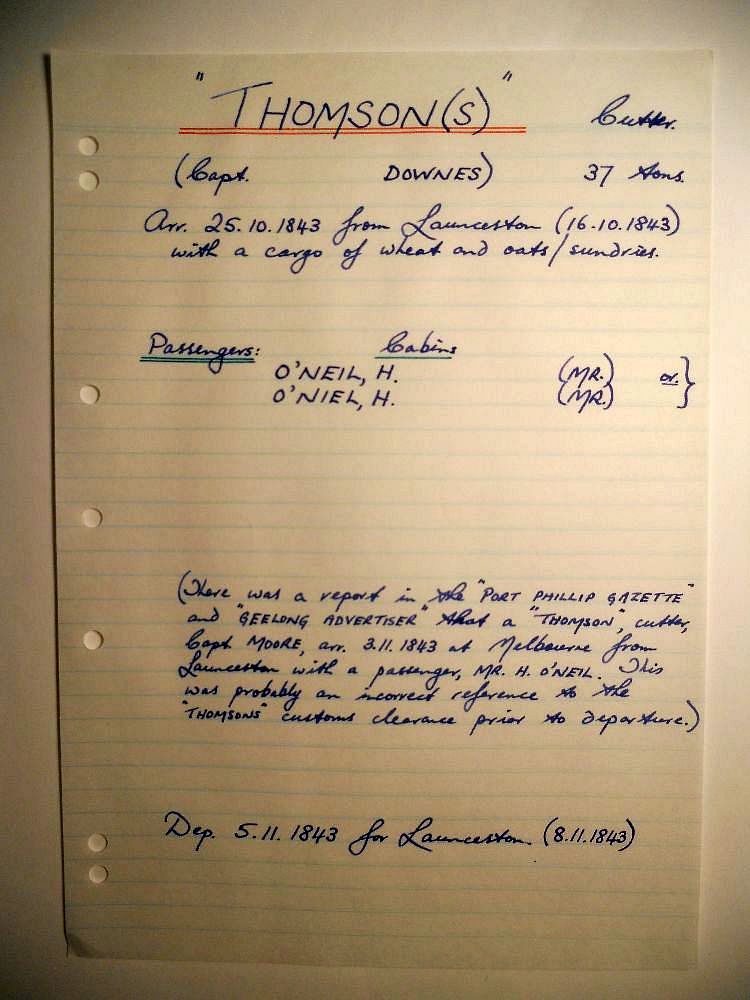 "THOMSON(S)" Cutter.
(Capt. DOWNES) 37 tons.
Arr. 25.10.1843 from Launceston (16.10.1843)
with a cargo of wheat and oats/sundries.
Passengers: Cabins
O'NEIL, H. (MR.) or. }
O'NIEL, H. (MR.)
(There was a report in the "PORT PHILLIP GAZETTE"
and "GEELONG ADVERTISER" that a "THOMSON", cutter,
Capt. MOORE, arr. 3.11.1843 at Melbourne from
Launceston with a passenger, MR. H. O'NEIL. This
was probably an incorrect reference to the
"THOMSONS" customs clearance prior to departure.)
Dep. 5.11.1843 for Launceston. (8.11.1843)